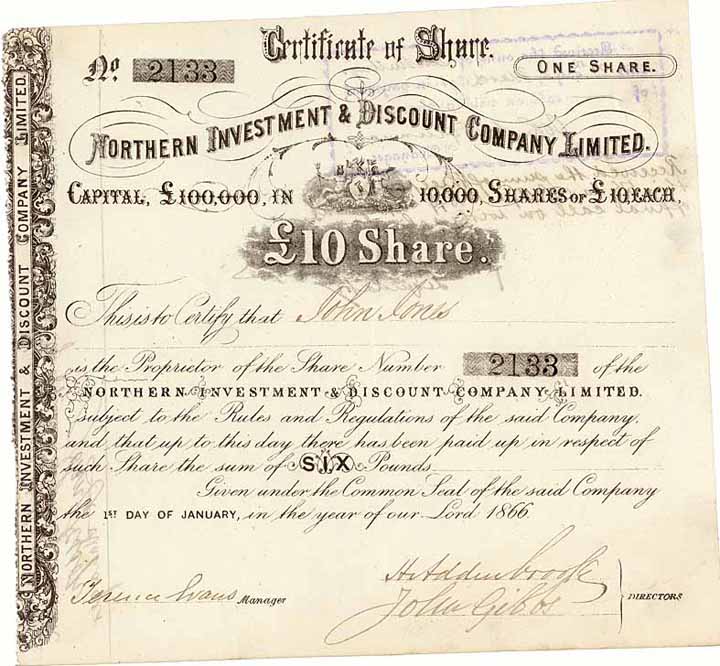 Certificate of Share.
No. 2133
ONE SHARE.
NORTHERN INVESTMENT & DISCOUNT COMPANY LIMITED.
CAPITAL, £100,000, IN 10,000, SHARES OF £10, EACH,
£10 Share.
This is to Certify that John Jones
is the Proprietor of the Share Number 2133 of the
NORTHERN INVESTMENT & DISCOUNT COMPANY LIMITED.
subject to the Rules and Regulations of the said Company,
and that up to this day there has been paid up in respect of
such Share the sum of SIX Pounds
Given under the Common Seal of the said Company
the 1ST DAY OF JANUARY, in the year of our Lord 1866.
Terence Evans Manager
H Addenbrooke
John Gibbs
DIRECTORS
NORTHERN INVESTMENT & DISCOUNT COMPANY LIMITED.